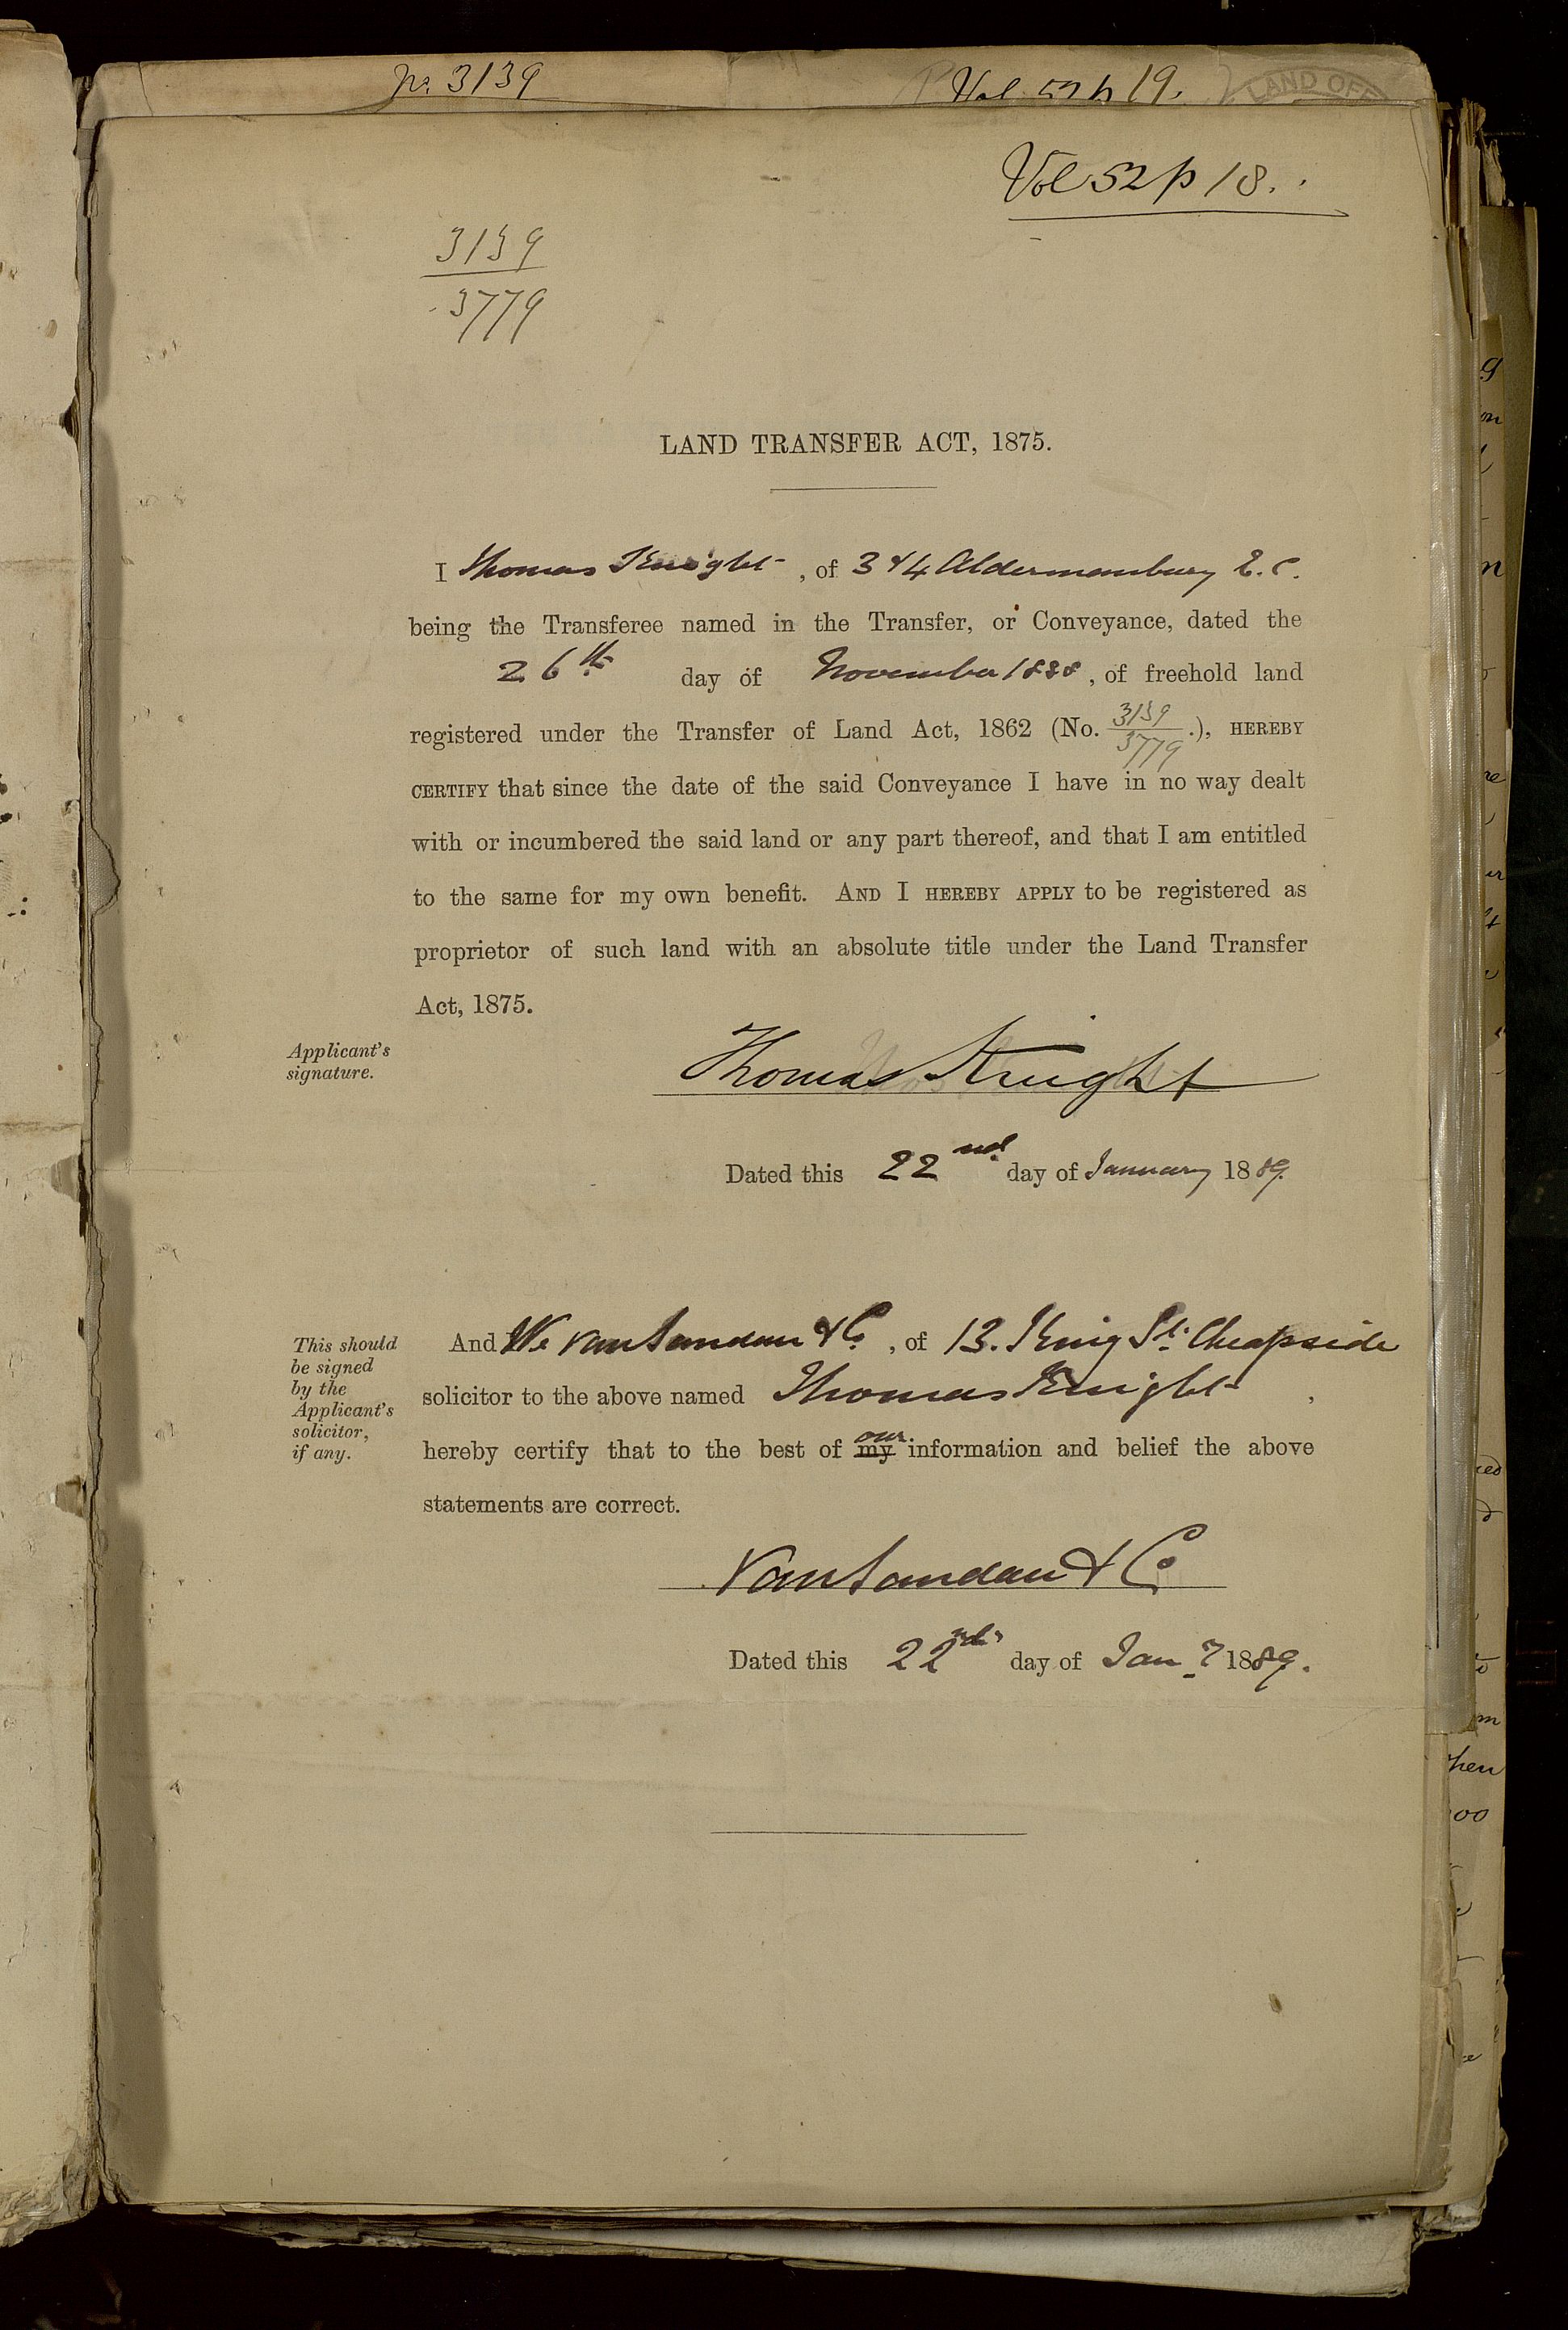 No. 3139
Vol. 52 p 19.
LAND OFF
Vol 52 p 18.
3139
3779
LAND TRANSFER ACT, 1875.
I Thomas Knight, of 3 & 4 Aldermanbury E.C.
being the Transferee named in the Transfer, or Conveyance, dated the
26th day of November 1888, of freehold land
registered under the Transfer of Land Act, 1862 (No. 3139/3779.), HEREBY
CERTIFY that since the date of the said Conveyance I have in no way dealt
with or incumbered the said land or any part thereof, and that I am entitled
to the same for my own benefit. AND I HEREBY APPLY to be registered as
proprietor of such land with an absolute title under the Land Transfer
Act, 1875.
Applicant's
signature.
Thomas Knight
Dated this 22nd day of January 1889.
This should
be signed
by the
Applicant's
solicitor,
if any.
And We Van Sandau & Co., of 13. King St. Cheapside
solicitor to the above named Thomas Knight,
hereby certify that to the best of my our information and belief the above
statements are correct.
Van Sandau & Co
Dated this 22nd day of Jany 1889.